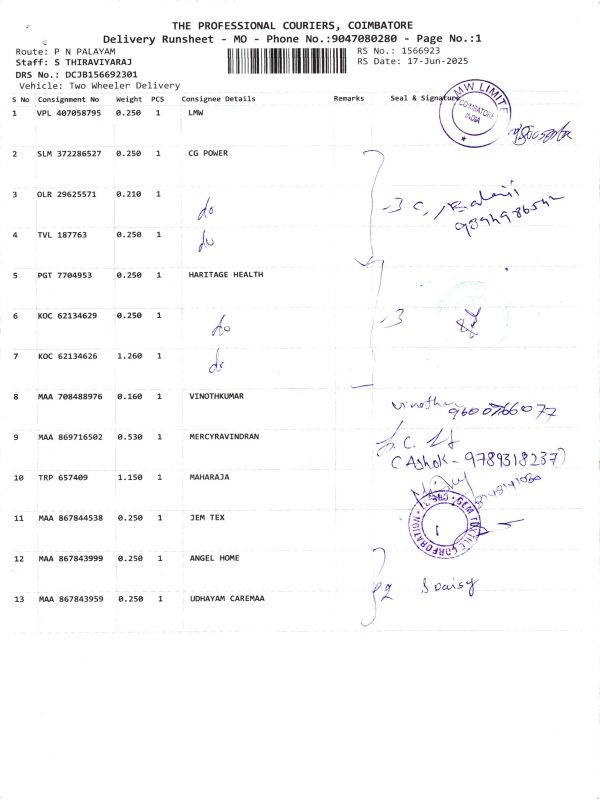 THE PROFESSIONAL COURIERS, COIMBATORE
Delivery Runsheet - MO - Phone No.:9047080280 - Page No.:1
Route: P N PALAYAM
RS No.: 1566923
Staff: S THIRAVIYARAJ
RS Date: 17-Jun-2025
DRS No.: DCJB156692301
Vehicle: Two Wheeler Delivery
S No Consignment No Weight PCS Consignee Details Remarks Seal & Signature
1 VPL 407058795 0.250 1 LMW
MW LIMITE
COIMBATORE
INDIA
2 SLM 372286527 0.250 1 CG POWER
3 OLR 29625571 0.210 1 do
-3
4 TVL 187763 0.250 1 do
5 PGT 7704953 0.250 1 HARITAGE HEALTH
6 KOC 62134629 0.250 1 do -3
7 KOC 62134626 1.260 1 do
8 MAA 708488976 0.160 1 VINOTHKUMAR
9 MAA 869716502 0.530 1 MERCYRAVINDRAN
(Ashok - 9789318237)
10 TRP 657409 1.150 1 MAHARAJA
11 MAA 867844538 0.250 1 JEM TEX
12 MAA 867843999 0.250 1 ANGEL HOME
2 S Daisy
13 MAA 867843959 0.250 1 UDHAYAM CAREMAA